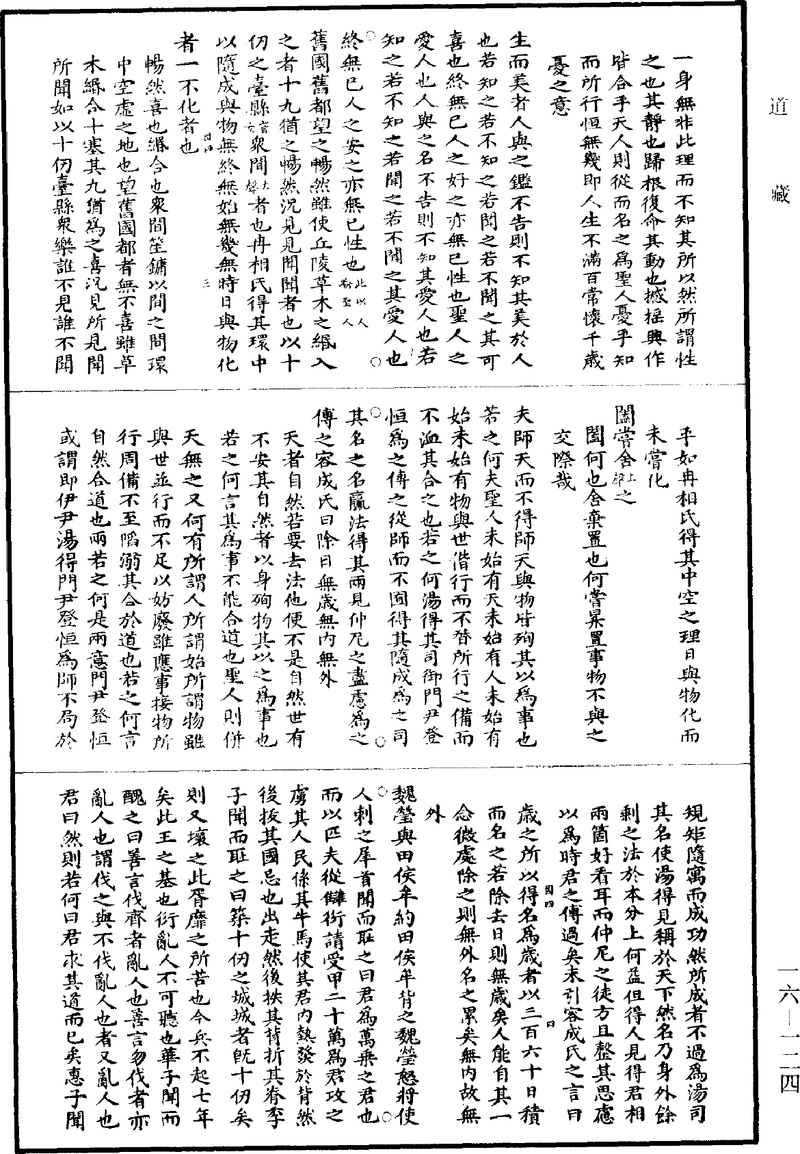 道藏
一身無非此理而不知其所以然所謂性
之也其靜也歸根復命其動也撼搖興作
皆合乎天人則從而名之爲聖人憂乎知
而所行恒無幾即人生不滿百常懷千歲
憂之意
生而美者人與之鑑不告則不知其美於人
也若知之若不知之若聞之若不聞之其可
喜也終無已人之好之亦無已性也聖人之
愛人也人與之名不告則不知其愛人也若
知之若不知之若聞之若不聞之其愛人也
終無已人之安之亦無已性也此以人喻聖人
舊國舊都望之暢然雖使丘陵草木之緡入
之者十九猶之暢然況見見聞聞者也以十
仞之臺縣衆閒者也冉相氏得其環中
以隨成與物無終無始無幾無時日與物化
者一不化者也
暢然喜也緡合也衆間笙鏞以間之間環
中空虛之地也望舊國都者無不喜雖草
木緡合十塞其九猶爲之喜況見所見聞
所聞如以十仞臺縣衆樂誰不見誰不聞
乎如冉相氏得其中空之理日與物化而
未嘗化
闔嘗舍之
闔何也舍棄置也何嘗杲置事物不與之
交際哉
夫師天而不得師天與物皆殉其以爲事也
若之何夫聖人未始有天未始有人未始有
始未始有物與世偕行而不替所行之備而
不洫其合之也若之何湯得其司御門尹登
恒爲之傅之從師而不囿得其隨成爲之司
其名之名嬴法得其兩見仲尼之盡慮爲之
傅之容成氏曰除日無歲無內無外
天者自然若要去法他便不是自然世有
不安其自然者以身殉物其以之爲事也
若之何言其爲事不能合道也聖人則併
天無之又何有所謂人所謂始所謂物雖
與世並行而不足以妨廢雖應事接物所
行周備不至陷溺其合於道也若之何言
自然合道也兩若之何是兩意門尹登恒
或謂即伊尹湯得門尹登恒爲師不局於
規矩隨寓而成功然所成者不過爲湯司
其名使湯得見稱於天下然名乃身外餘
剩之法於本分上何益但得人見得君相
兩箇好看耳而仲尼之徒方且整其思慮
以爲時君之傅過矣末引容成氏之言曰
歲之所以得名爲歲者以三百六十日積
而名之若除去日則無歲矣人能自其一
念微處除之則無外名之累矣無內故無
外
魏瑩與田侯牟約田侯牟背之魏瑩怒將使
人刺之犀首聞而恥之曰君爲萬乘之君也
而以匹夫從讎衍請受甲二十萬爲君攻之
虜其人民係其牛馬使其君內熱發於背然
後拔其國忌也出走然後抶其背折其脊季
子聞而恥之曰築十仞之城城者既十仞矣
則又壞之此胥靡之所苦也今兵不起七年
矣此王之基也衍亂人不可聽也華子聞而
醜之曰善言伐齊者亂人也善言勿伐者亦
亂人也謂伐之與不伐亂人也者又亂人也
君曰然則若何曰君求其道而已矣惠子聞
一六—一二四